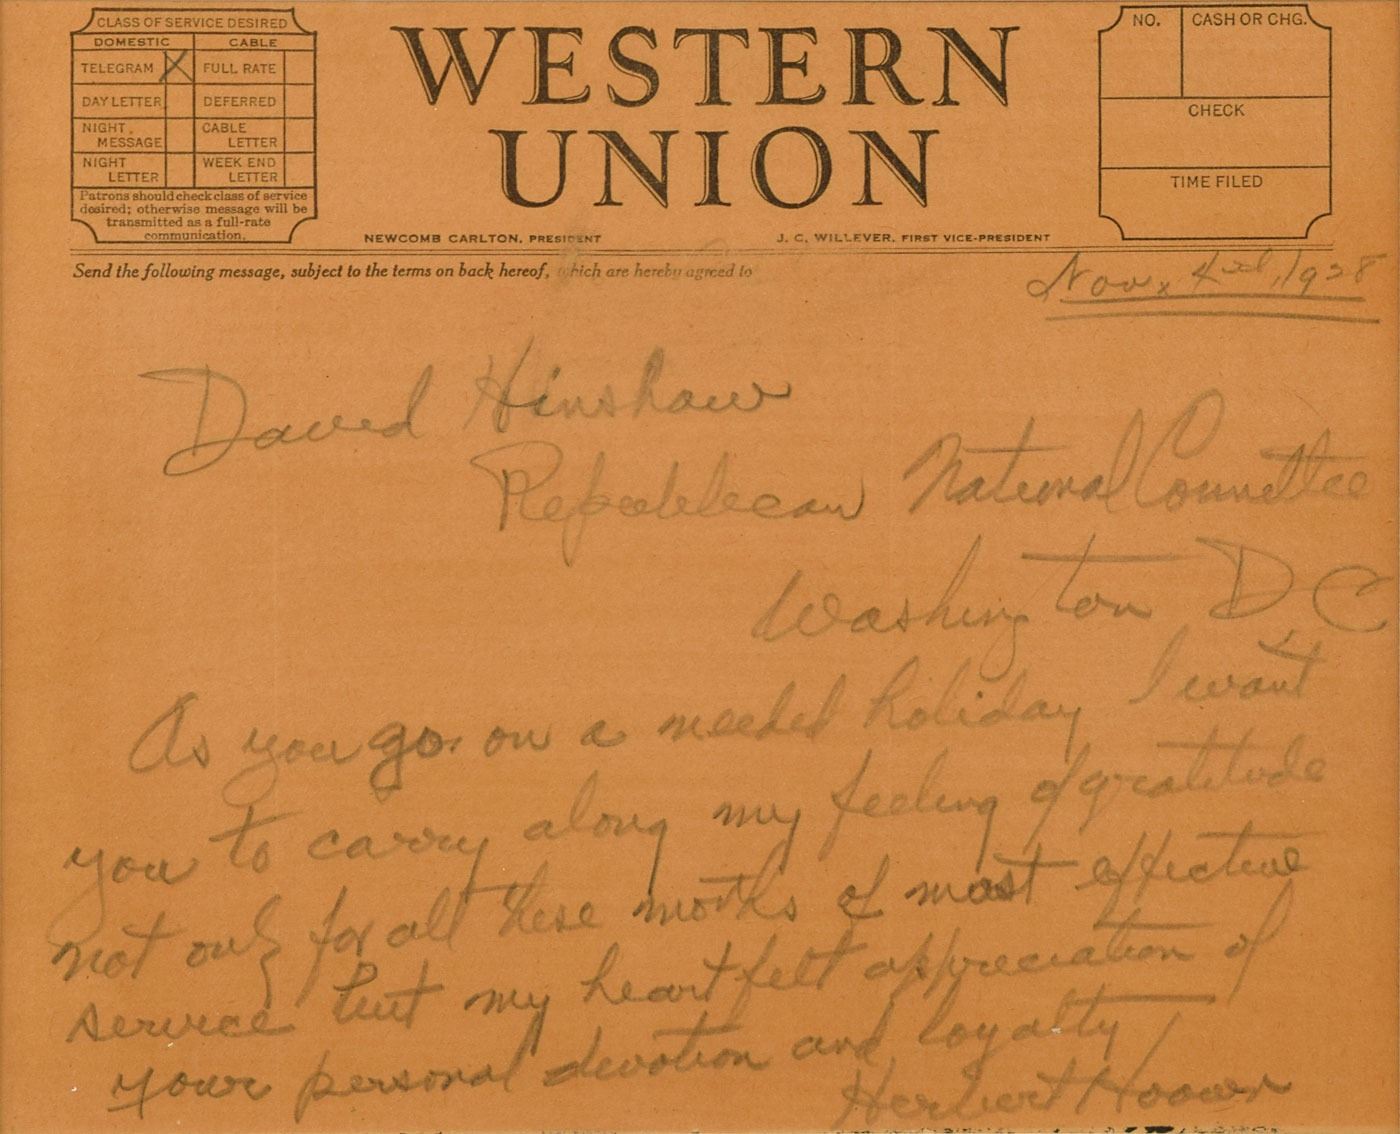 CLASS OF SERVICE DESIRED
DOMESTIC CABLE
TELEGRAM X FULL RATE
DAY LETTER DEFERRED
NIGHT MESSAGE CABLE LETTER
NIGHT LETTER WEEK END LETTER
Patrons should check class of service
desired; otherwise message will be
transmitted as a full-rate
communication.
WESTERN
UNION
NEWCOMB CARLTON, PRESIDENT
J. C. WILLEVER, FIRST VICE-PRESIDENT
NO. CASH OR CHG.
CHECK
TIME FILED
Send the following message, subject to the terms on back hereof, which are hereby agreed to
Nov. 4, 1928
David Hinshaw
Republican National Committee
Washington D C
As you go on a needed holiday I want
you to carry along my feeling of gratitude
not only for all these months of most effective
service but my heartfelt appreciation of
your personal devotion and loyalty
Herbert Hoover